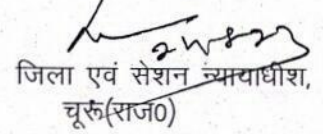 जिला एवं सेशन न्यायाधीश,
चूरू(राज0)